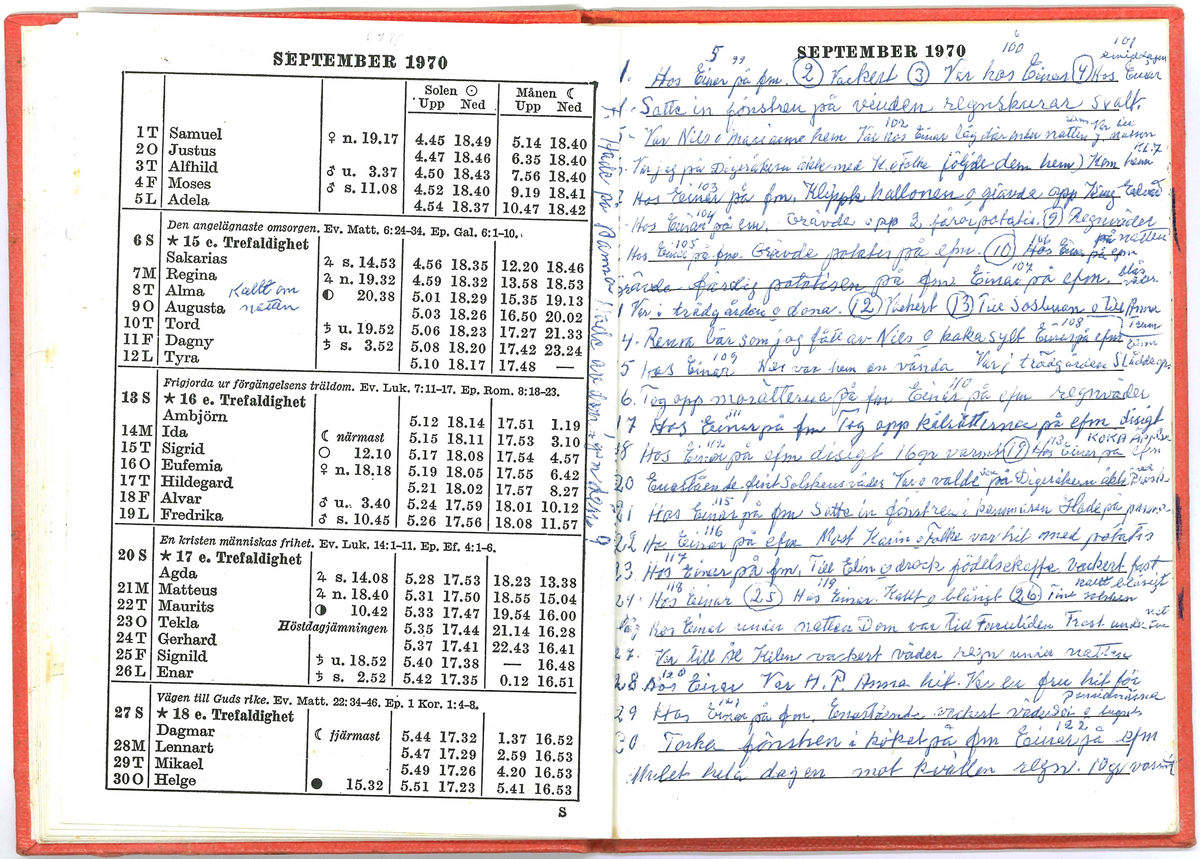 SEPTEMBER 1970
Solen ☉ Månen ☾
Upp Ned Upp Ned
1 T Samuel ♀ n. 19.17 4.45 18.49 5.14 18.40
2 O Justus 4.47 18.46 6.35 18.40
3 T Alfhild ♂ u. 3.37 4.50 18.43 7.56 18.40
4 F Moses ♂ s. 11.08 4.52 18.40 9.19 18.41
5 L Adela 4.54 18.37 10.47 18.42
Den angelägnaste omsorgen. Ev. Matt. 6:24-34. Ep. Gal. 6:1-10.
6 S ★ 15 e. Trefaldighet
Sakarias ♃ s. 14.53 4.56 18.35 12.20 18.46
7 M Regina ♃ n. 19.32 4.59 18.32 13.58 18.53
8 T Alma Kallt om ◐ 20.38 5.01 18.29 15.35 19.13
9 O Augusta natten 5.03 18.26 16.50 20.02
10 T Tord ♄ u. 19.52 5.06 18.23 17.27 21.33
11 F Dagny ♄ s. 3.52 5.08 18.20 17.42 23.24
12 L Tyra 5.10 18.17 17.48 —
Frigjorda ur förgängelsens träldom. Ev. Luk. 7:11-17. Ep. Rom. 8:18-23.
13 S ★ 16 e. Trefaldighet
Ambjörn 5.12 18.14 17.51 1.19
14 M Ida ☾ närmast 5.15 18.11 17.53 3.10
15 T Sigrid ○ 12.10 5.17 18.08 17.54 4.57
16 O Eufemia ♀ n. 18.18 5.19 18.05 17.55 6.42
17 T Hildegard 5.21 18.02 17.57 8.27
18 F Alvar ♂ u. 3.40 5.24 17.59 18.01 10.12
19 L Fredrika ♂ s. 10.45 5.26 17.56 18.08 11.57
En kristen människas frihet. Ev. Luk. 14:1-11. Ep. Ef. 4:1-6.
20 S ★ 17 e. Trefaldighet
Agda ♃ s. 14.08 5.28 17.53 18.23 13.38
21 M Matteus ♃ n. 18.40 5.31 17.50 18.55 15.04
22 T Maurits ◑ 10.42 5.33 17.47 19.54 16.00
23 O Tekla Höstdagjämningen 5.35 17.44 21.14 16.28
24 T Gerhard 5.37 17.41 22.43 16.41
25 F Signild ♄ u. 18.52 5.40 17.38 — 16.48
26 L Enar ♄ s. 2.52 5.42 17.35 0.12 16.51
Vägen till Guds rike. Ev. Matt. 22:34-46. Ep. 1 Kor. 1:4-8.
27 S ★ 18 e. Trefaldighet
Dagmar ☾ fjärmast 5.44 17.32 1.37 16.52
28 M Lennart 5.47 17.29 2.59 16.53
29 T Mikael 5.49 17.26 4.20 16.53
30 O Helge ● 15.32 5.51 17.23 5.41 16.53
S
SEPTEMBER 1970
99 100 101
1. Hos Einar på fm. 2 Vackert 3 Var hos Einar 4 Hos Einar
Satte in fönstren på vinden regnskurar svalt.
102
Var Nils o Marianne hem Var hos Einar
Var jag på Digeråkern med K. o Falke följde dem hem) Kom hem Kl. 7
103
7 Hos Einar på fm. Klippte hallonen o grävde opp
104
Hos Einar på em. Grävde opp 2 fåror potatis. 9 Regnväder
105 106 på natten
Hos Einar på fm. Grävde potatis på efm. 10 Hos Einar på efm
107
Grävde färdig potatisen på fm Einar på efm. blås väder
Var i trädgården o dona. 12 Vackert 13 Till Anna
108
4. Rensa bär som jag fått av Nils o koka sylt Einar på efm
109
5 Hos Einar Nils var hem en vända Var i trädgården
110
6. Tog opp morötterna på fm Einar på efm regnväder
111
17 Hos Einar på fm Tog opp kålrötterna på efm disigt
112 113 KOKA
18 Hos Einar på efm disigt 16 gr varmt 19 Hos Einar på efm
20 Enastående fint Solskensväder Var o valde på Digeråkern
115
21 Hos Einar på fm Satte in fönstren i
116
22 Hos Einar på efm Most Karin o Falke var hit med potatis
117
23. Hos Einar på fm. Till Elin o drack födelsekaffe vackert
118 119
24. Hos Einar 25 Hos Einar. Kallt o blåsigt 26 Fint
Hos Einar under natten Dom var till Furuliden Frost under
27. Var Till vackert väder regn under natten
120
28 Hos Einar Var H. P. Anna hit. Var en fru hit för
29 Hos Einar på fm. Enastående vackert väder
122
30. Torka fönstren i köket på fm Einar på efm
Mulet hela dagen mot kvällen regn. 10 gr varmt